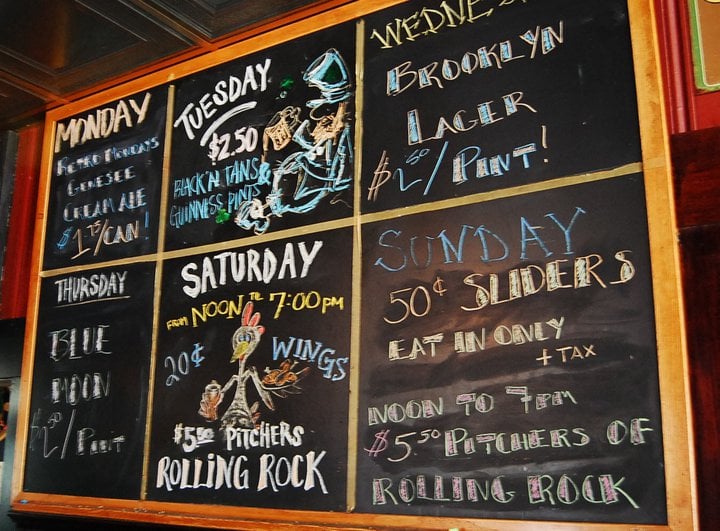 MONDAY
RETRO MONDAYS
GENESEE
CREAM ALE
$1.75/CAN!
TUESDAY
$2.50
BLACK N TANS &
GUINNESS PINTS
WEDNES
BROOKLYN
LAGER
$2.50/PINT!
THURSDAY
BLUE
MOON
$2.50/PINT
SATURDAY
FROM NOON TIL 7:00 PM
20¢ WINGS
$5.50 PITCHERS
ROLLING ROCK
SUNDAY
50¢ SLIDERS
EAT IN ONLY
+ TAX
NOON TO 7PM
$5.50 PITCHERS OF
ROLLING ROCK